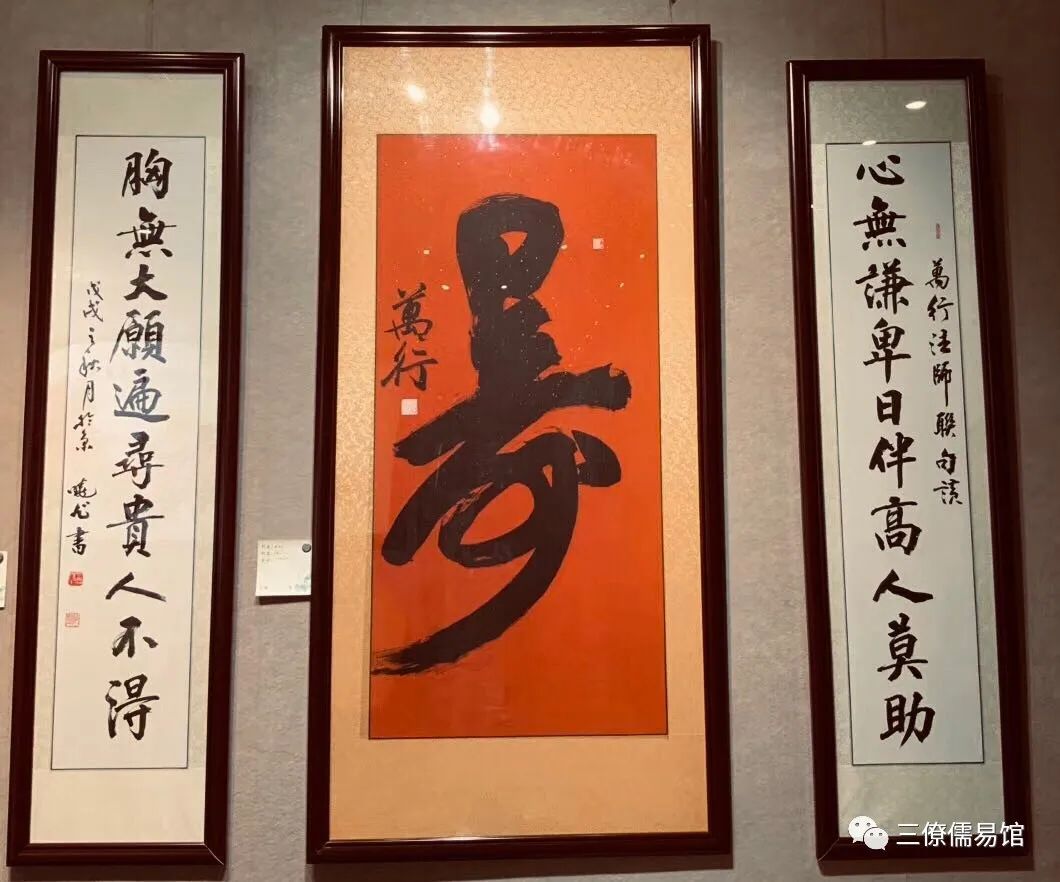 心無謙卑日伴高人莫助
萬行法師聯句
寿
萬行
胸無大願遍尋貴人不得
戊戌之秋月於京
書
三僚儒易馆